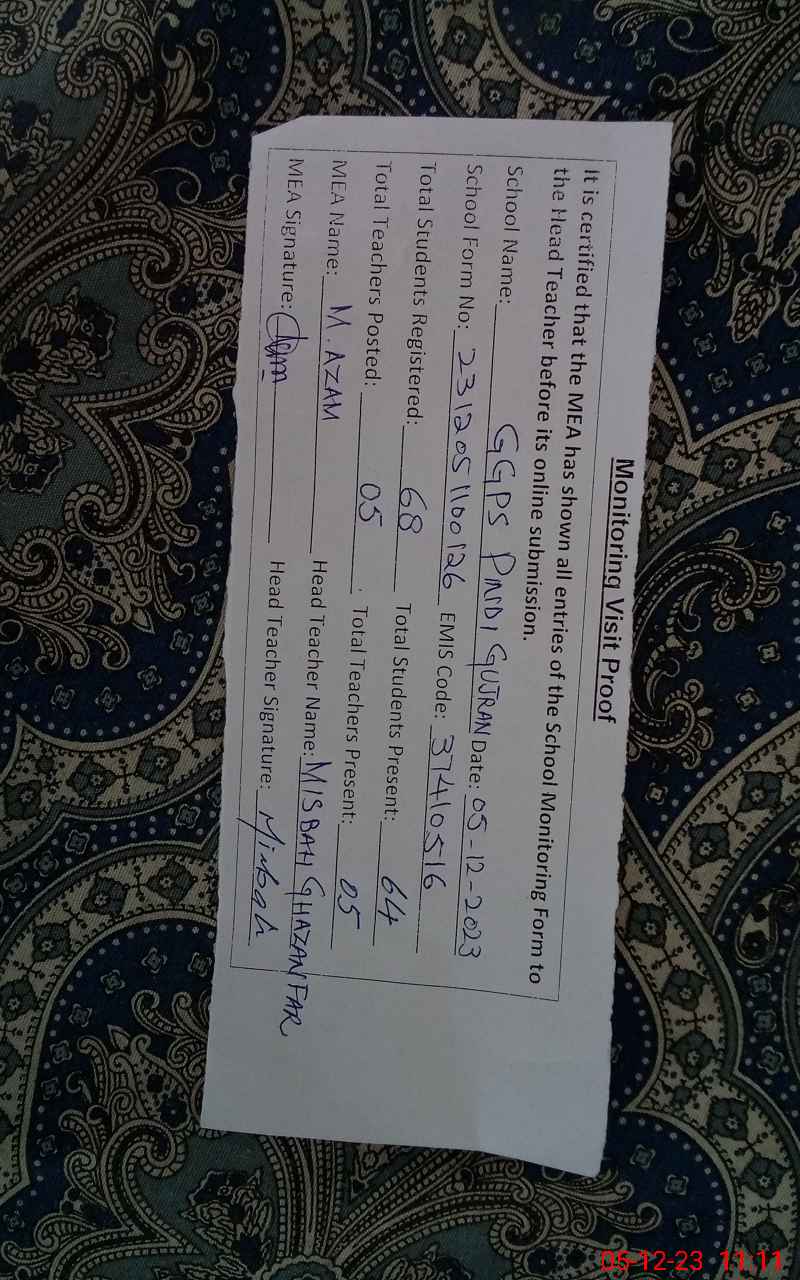 Monitoring Visit Proof
It is certified that the MEA has shown all entries of the School Monitoring Form to
the Head Teacher before its online submission.
School Name: GGPS PINDI GUJRAN Date: 05-12-2023
School Form No: 2312051100126 EMIS Code: 37410516
Total Students Registered: 68 Total Students Present: 64
Total Teachers Posted: 05. Total Teachers Present: 05
MEA Name: M. AZAM Head Teacher Name: MISBAH GHAZANFAR
MEA Signature: Head Teacher Signature: Misbah
05-12-23 11:11